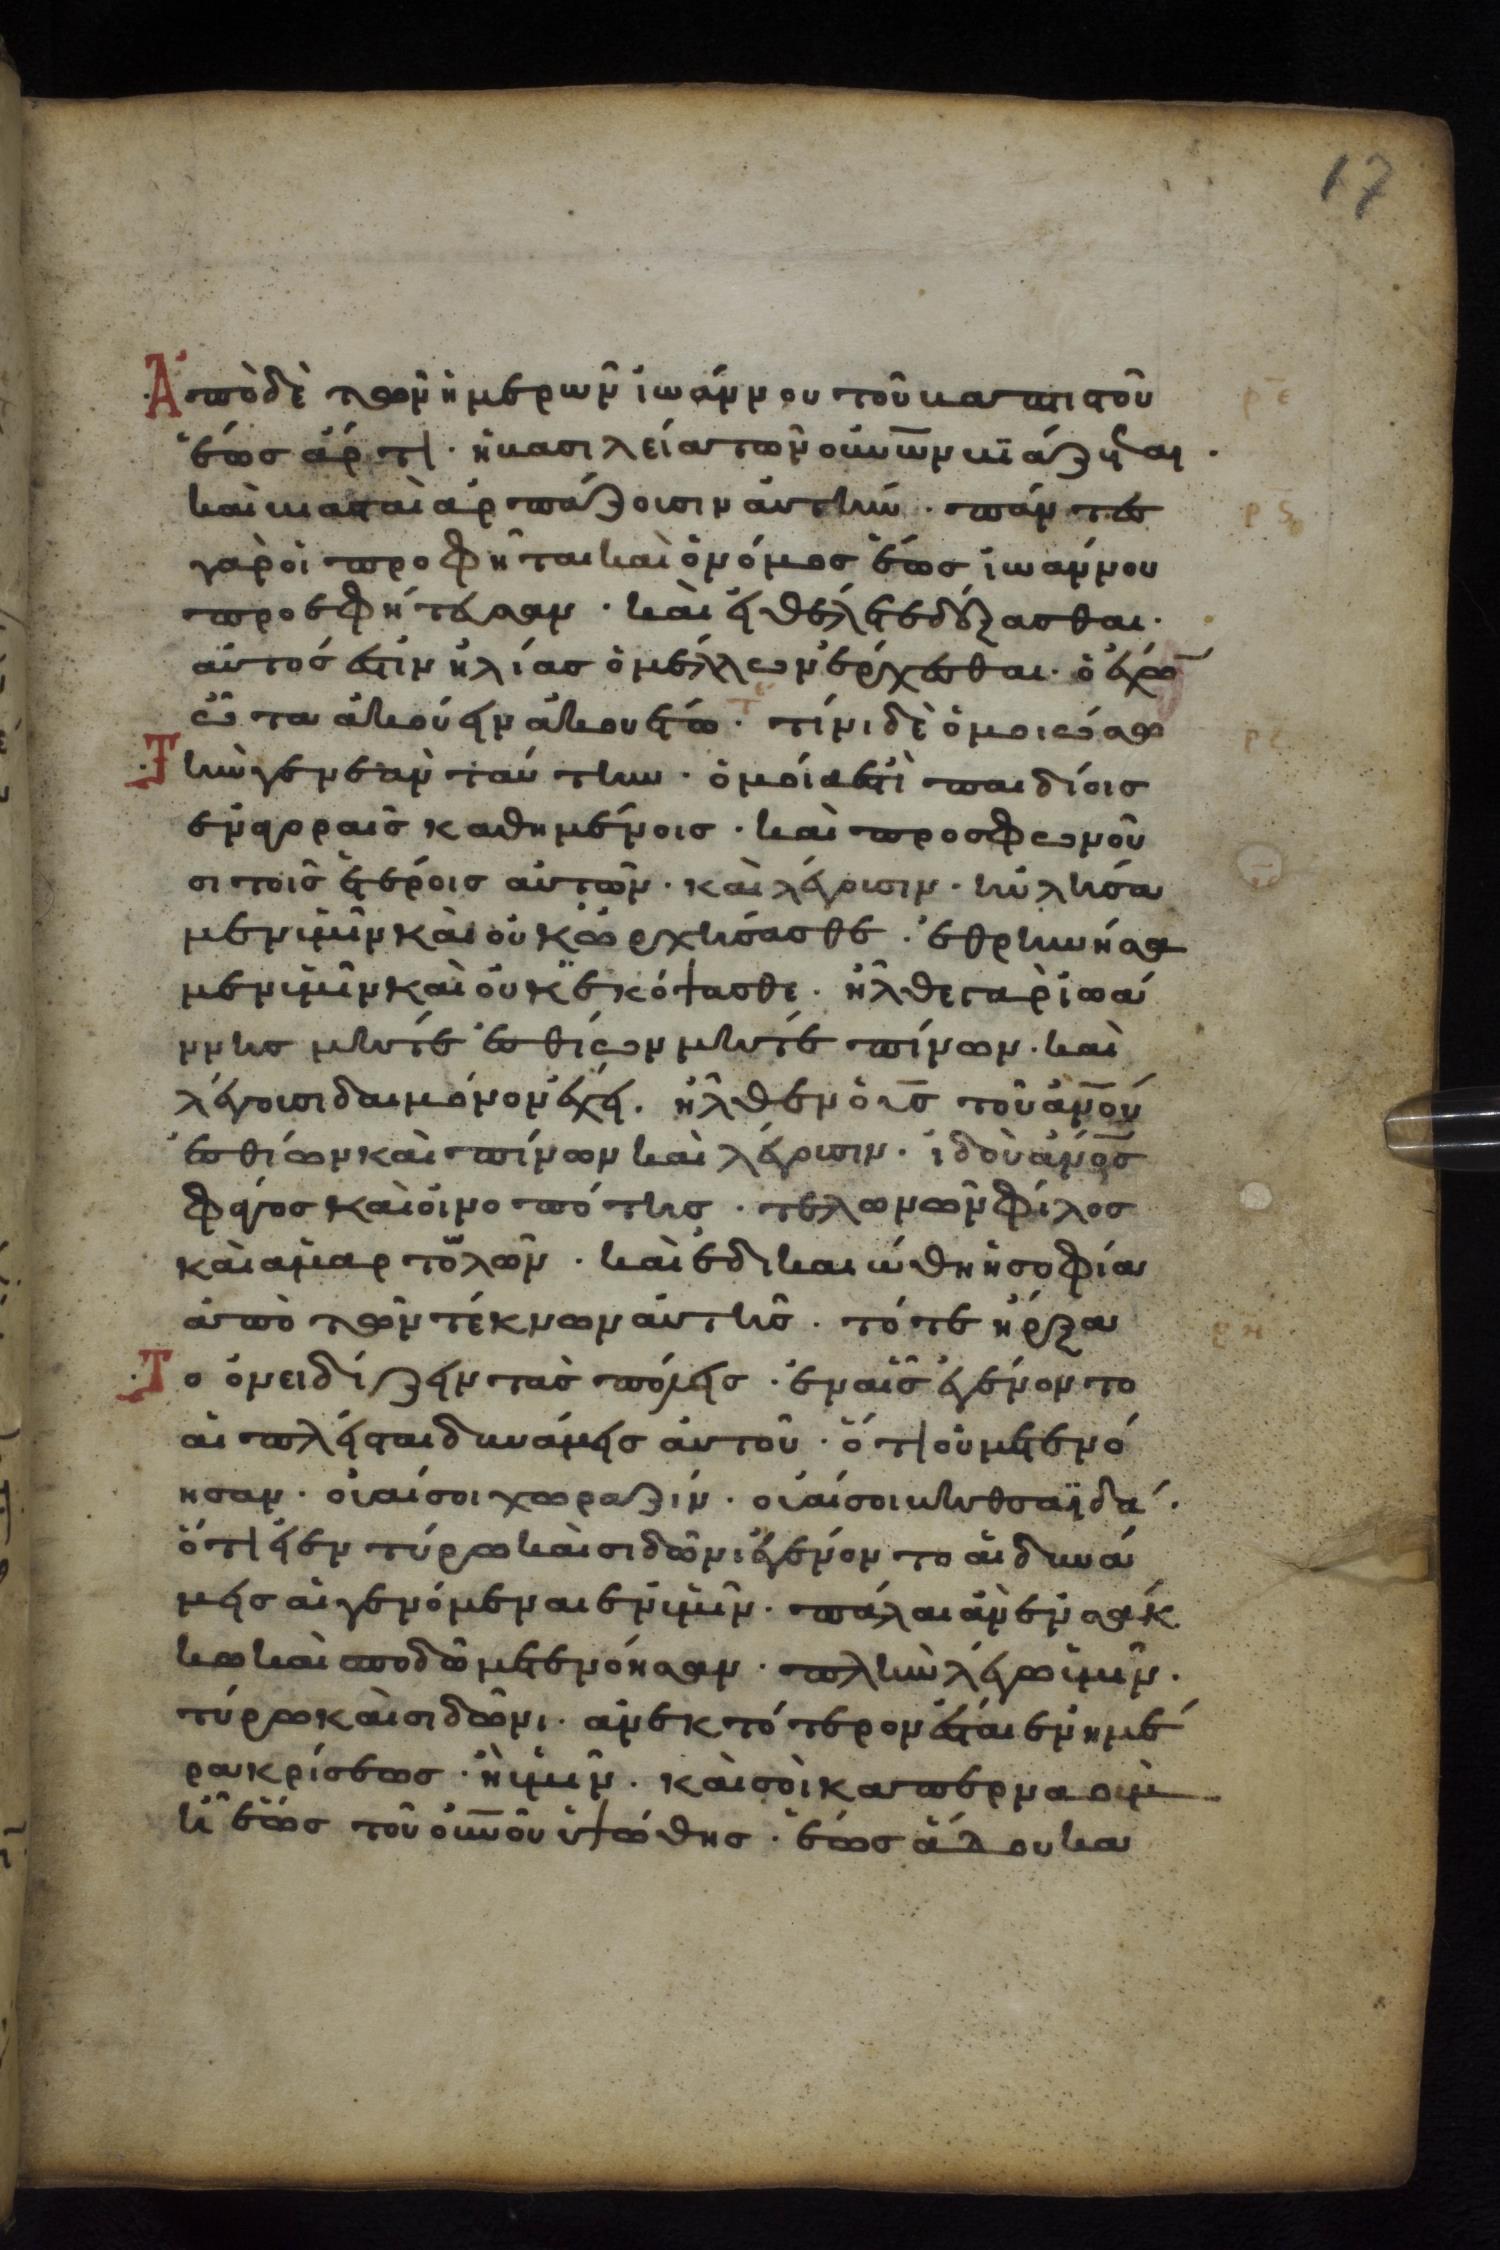 17
Ἀπὸ δὲ τῶν ἡμερῶν ἰωάννου τοῦ βαπτιστοῦ
ἕως ἄρτι · ἡ βασιλεία τῶν οὐν͞ων βϊάζεται ·
καὶ βιασταὶ ἁρπάζουσιν αὐτήν · πάντες
γὰρ οἱ προφῆται καὶ ὁ νόμος ἕως ἰωάννου
προεφήτευσαν · καὶ εἰ θέλετε δέξασθαι ·
αὐτός ἐστιν ἠλίας ὁ μέλλων ἔρχεσθαι · ὁ ἔχω͞
ὦτα ἀκούειν ἀκουέτω · τίνι δὲ ὁμοιώσω
Τὴν γενεὰν ταύτην · ὁμοία ἐστὶ παιδίοις
ἐν ἀγοραῖς καθημένοις · καὶ προσφωνοῦ
σι τοῖς ἑτέροις αὐτῶν · καὶ λέγουσιν · ηὐλήσα
μεν ὑμῖν καὶ οὐκ ὠρχήσασθε · ἐθρηνήσα
μεν ὑμῖν καὶ οὐκ ἐκόψασθε · ἦλθε γὰρ ἰωά
ννης μήτε ἐσθίων μήτε πίνων · καὶ
λέγουσι δαιμόνιον ἔχει · ἦλθεν ὁ υ͞ς τοῦ ἀν͞ου
ἐσθίων καὶ πίνων καὶ λέγουσιν · ἰδοὺ ἄν͞ος
φάγος καὶ οἰνοπότης · τελωνῶν φίλος
καὶ ἁμαρτολῶν · καὶ ἐδικαιώθη ἡ σοφία
ἀπὸ τῶν τέκνων αὐτῆς · τότε ἤρξα
Το ὀνειδίζειν τὰς πόλεις · ἐν αἷς ἐγένοντο
αἱ πλεῖσται δυνάμεις αὐτοῦ · ὅτι οὐ μετενό
ησαν · οὐαί σοι χωραζίν · οὐαί σοι βηθσαϊδά ·
ὅτι εἰ ἐν τύρω καὶ σιδῶνι ἐγένοντο αἱ δυνά
μεις αἱ γενόμεναι ἐν ὑμῖν · πάλαι ἂν ἐν σάκ
κω καὶ σποδῶ μετενόησαν · πλὴν λέγω ὑμῖν ·
τύρω καὶ σιδῶνι · ἀνεκτότερον ἔσται ἐν ἡμέ
ρα κρίσεως · ἢ ὑμῖν · καὶ σὺ καπερναοὺμ
ἡ ἕως τοῦ οὐν͞οῦ ὑψώθης · ἕως ἅδου κα